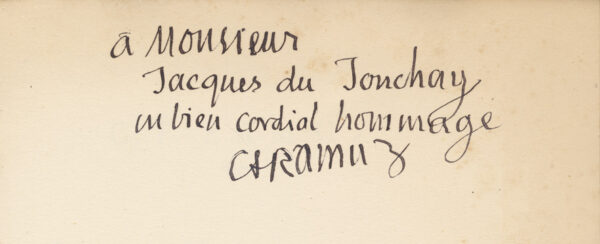 à Monsieur
Jacques du Jonchay
en bien cordial hommage
CFRAMUZ